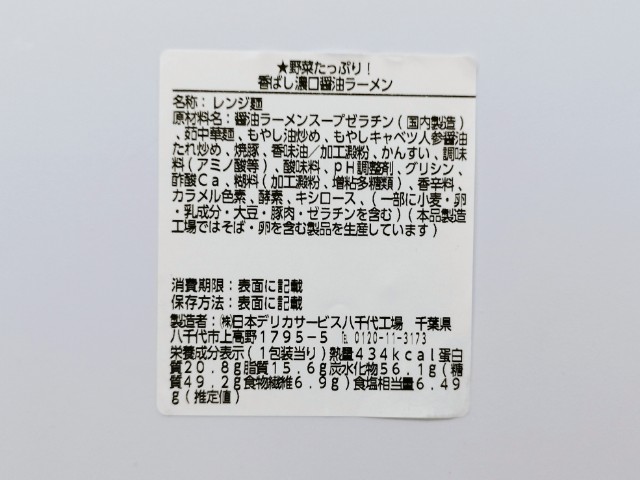 ★野菜たっぷり！
香ばし濃口醤油ラーメン
名称：レンジ麺
原材料名：醤油ラーメンスープゼラチン（国内製造）
、茹中華麺、もやし油炒め、もやしキャベツ人参醤油
たれ炒め、焼豚、香味油／加工澱粉、かんすい、調味
料（アミノ酸等）、酸味料、ｐＨ調整剤、グリシン、
酢酸Ｃａ、糊料（加工澱粉、増粘多糖類）、香辛料、
カラメル色素、酵素、キシロース、（一部に小麦・卵
・乳成分・大豆・豚肉・ゼラチンを含む）（本品製造
工場ではそば・卵を含む製品を生産しています）
消費期限：表面に記載
保存方法：表面に記載
製造者：㈱日本デリカサービス八千代工場　千葉県
八千代市上高野１７９５－５ ℡ 0120-11-3173
栄養成分表示（１包装当り）熱量４３４ｋｃａｌ蛋白
質２０．８ｇ脂質１５．６ｇ炭水化物５６．１ｇ（糖
質４９．２ｇ食物繊維６．９ｇ）食塩相当量６．４９
ｇ（推定値）